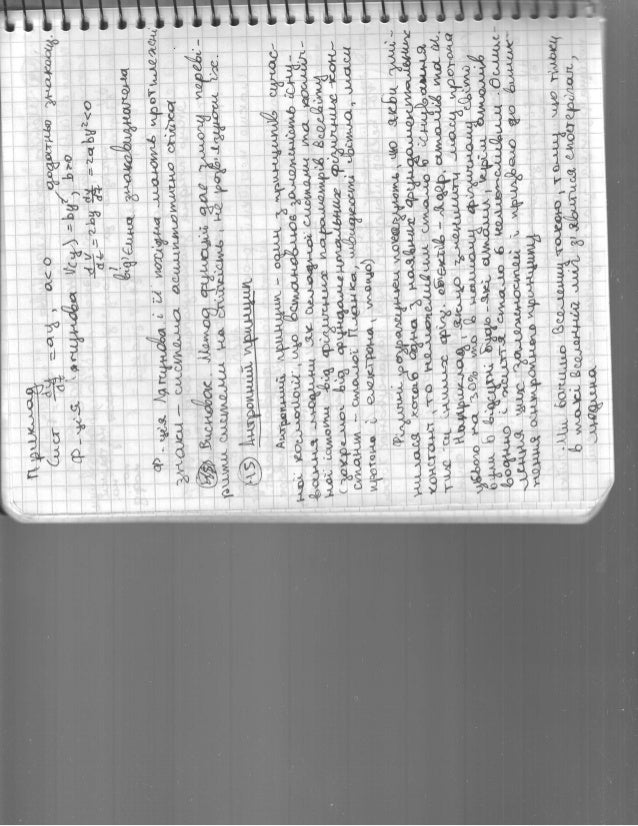 Приклад
Сист dy/dt = ay, a<0 додатньо знаковиз.
Ф-ція Ляпунова V(y) = by², b>0
dV/dt = 2by dy/dt = 2aby² < 0
від'ємна знаковизначена
Ф-ція Ляпунова і її похідна мають протилежні
знаки – система асимптотично стійка
Висновок: Метод функцій дає змогу переві-
рити системи на стійкість, не розв'язуючи їх.
45 Антропний принцип
Антропний принцип – один з принципів сучас-
ної космології, що встановлює залежність існу-
вання людини як складної системи та космічної
істоти від фізичних параметрів Всесвіту
(зокрема від фундаментальних фізичних кон-
стант – сталої Планка, швидкості світла, маси
протона і електрона, тощо)
Фізичні розрахунки показують, що якби змі-
нилася хоча б одна з наявних фундаментальних
констант, то неможливим стало б існування
тих чи інших фіз. об'єктів – ядер, атомів та ін.
Наприклад, якщо зменшити масу протона
усього на 30%, то в нашому фізичному світі
були б відсутні будь-які атоми, крім атомів
водню, і життя стало б неможливим. Осмис-
лення цих залежностей і призвело до виник-
нення антропного принципу
Ми бачимо Вселенну такою, тому що тільки
в такій Вселенній міг з'явитися спостерігач,
людина